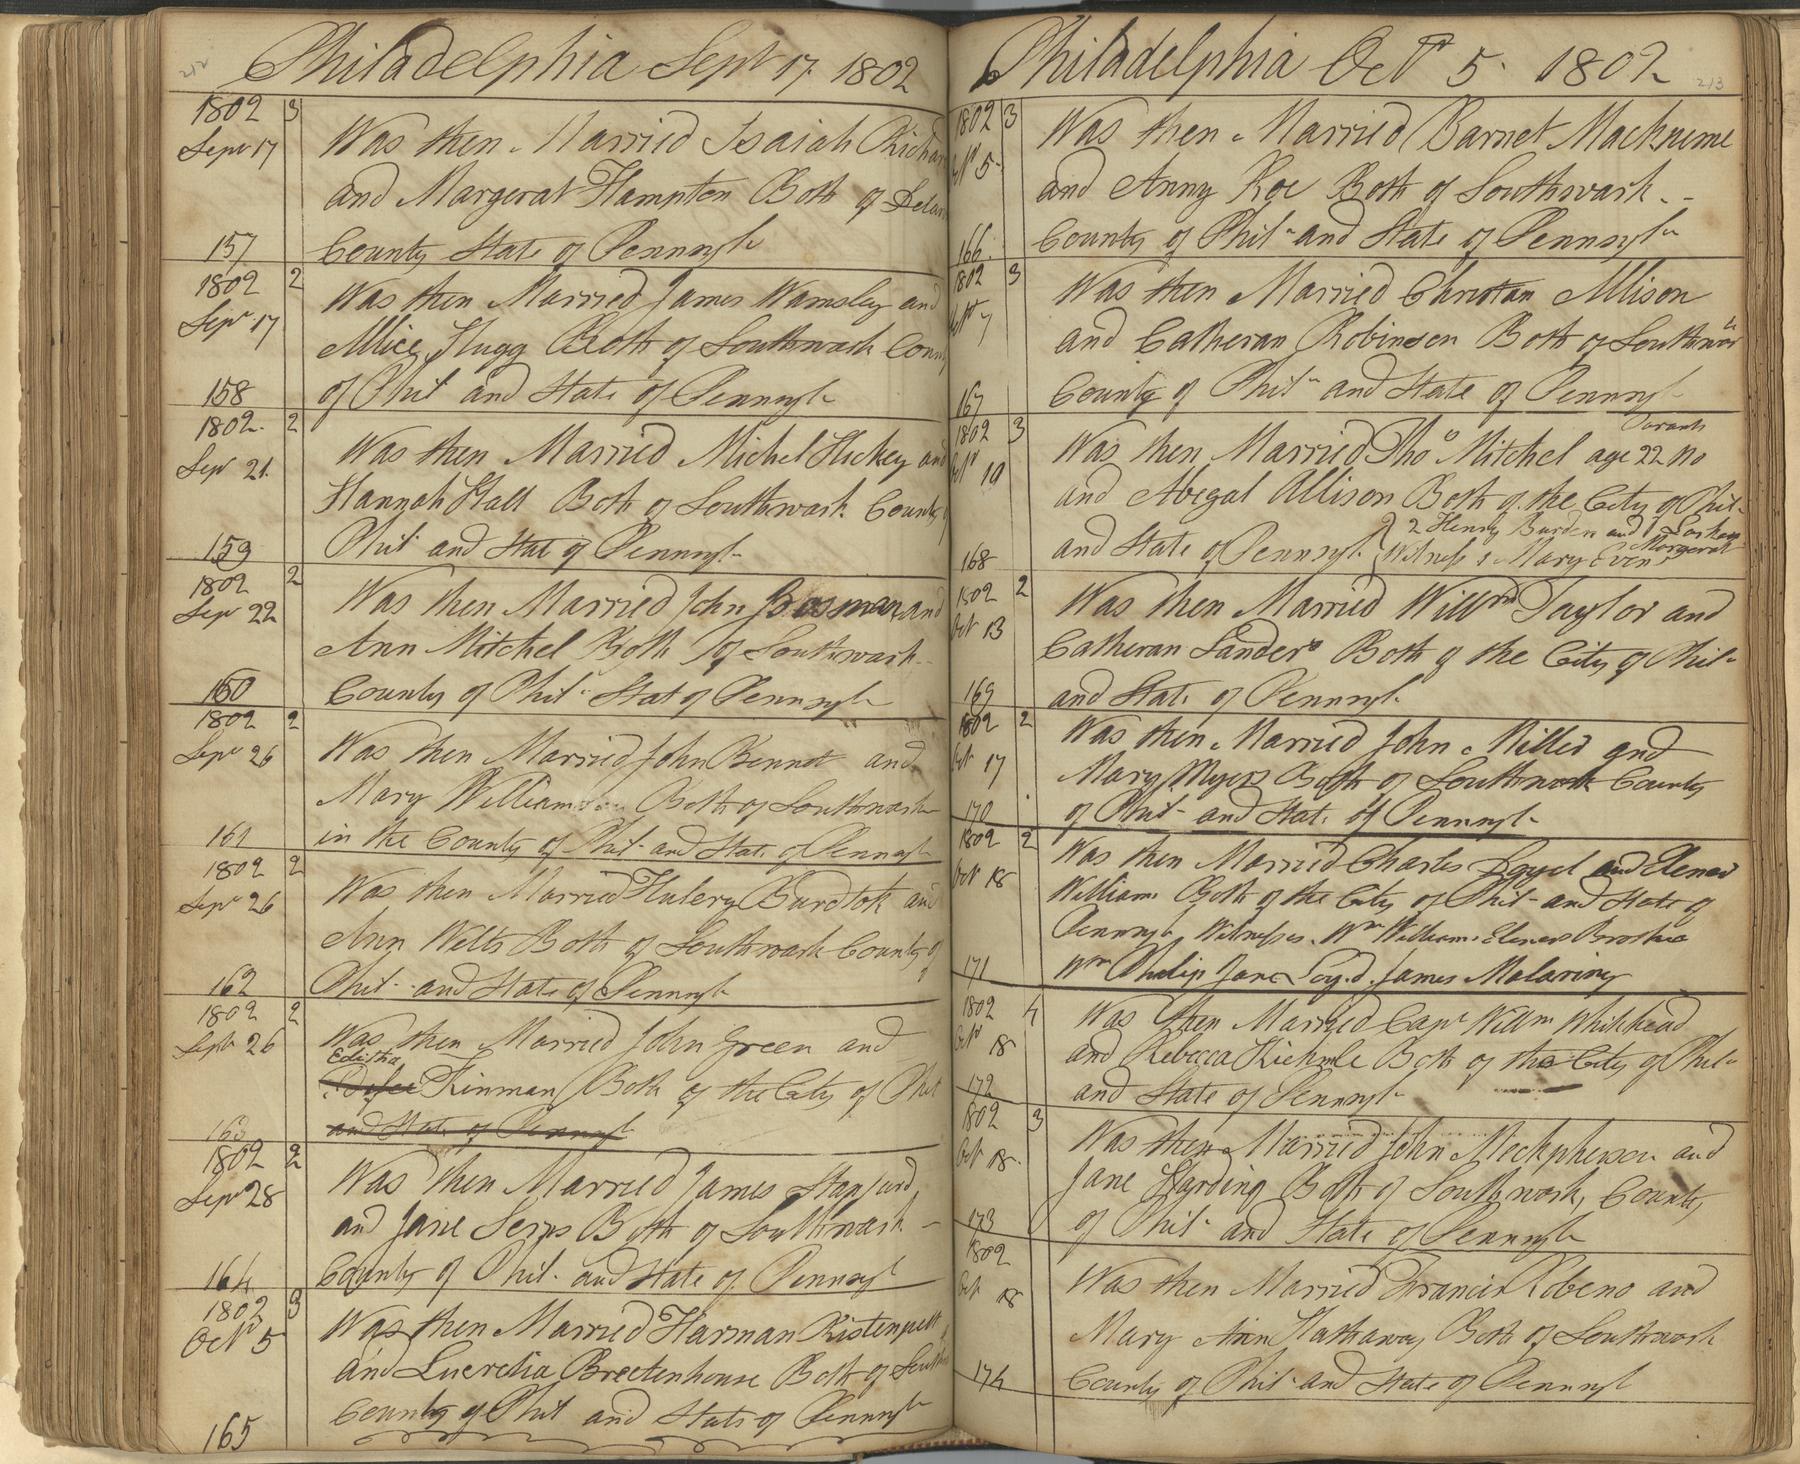 Philadelphia Sept 17. 1802
1802 3
Sept 17 Was then Married Isaiah Richar
and Margerat Hampton Both of Delaw
157 County State of Pennsyl
1802 2
Sept 17 Was then Married James Wamsley and
Allice Hugg Both of Southwark Coun
158 of Phil and State of Pennsyl
1802. 2
Sept 21. Was then Married Michel Hickey and
Hannah Hall Both of Southwark County
159 Phil and State of Pennsyl
1802 2
Sept 22 Was then Married John Bosman and
Ann Mitchel Both of Southwark
160 County of Phil Stat of Pennsyl
1802 2
Sept 26 Was then Married John Bennet and
Mary Williamson Both of Southwark
161 in the County of Phil and State of Pennsyl
1802 2
Sept 26 Was then Married Hulery Burdtok and
Ann Welts Both of Southwark County of
162 Phil and State of Pennsyl
1802 2
Sept 26 Was then Married John Green and
Editha
Kinman Both of the City of Phil
163 and State of Pennsyl
1802 2
Sept 28 Was then Married James Stanford
and Jane Serps Both of Southwark
164 County of Phil and State of Pennsyl
1802 3
Oct 5 Was then Married Harman Ristenpatt
and Lucretia Breetenhouse Both of South
165 County of Phil and State of Pennsyl
Philadelphia Oct 5 1802 213
1802 3
Oct 5 Was then Married Barnet Mackneme
and Anny Roe Both of Southwark
166. County of Phila and State of Pennsyla
1802 3
Oct 7 Was then Married Christan Allison
and Catheran Robinson Both of Southwar
167 County of Phila and State of Pennsyl
1802 3 Parants
Oct 10 Was then Married Tho Mitchel age 22 no
and Abegal Allison Both of the City of Phil
2 Henry Burden and
168 and State of Pennsyl Witness Mary Evens Margerat
1802 2
Oct 13 Was then Married Willm Taylor and
Catheran Landers Both of the City of Phil
169 and State of Pennsyl
1802 2
Oct 17 Was then Married John Miller and
Mary Myers Both of Southwark County
170 of Phil and State of Pennsyl
1802 2
Oct 18 Was then Married Charles Loyd and Elenar
Williams Both of the City of Phil and State of
Pennsyl Witnesses Wm Williams Elenar
171 Wm Philip Jane Loyd James
1802 4
Oct 18 Was then Married Capt Willm Whitehead
and Rebecca Kichmle Both of the City of Phil
172 and State of Pennsyl
1802 3
Oct 18. Was then Married John Meckpherson and
Jane Harding Both of Southwark County
173 of Phil and State of Pennsyl
1802
Oct 18 Was then Married Francis Robeno and
Mary Ann Hathaway Both of Southwark
174 County of Phil and State of Pennsyl